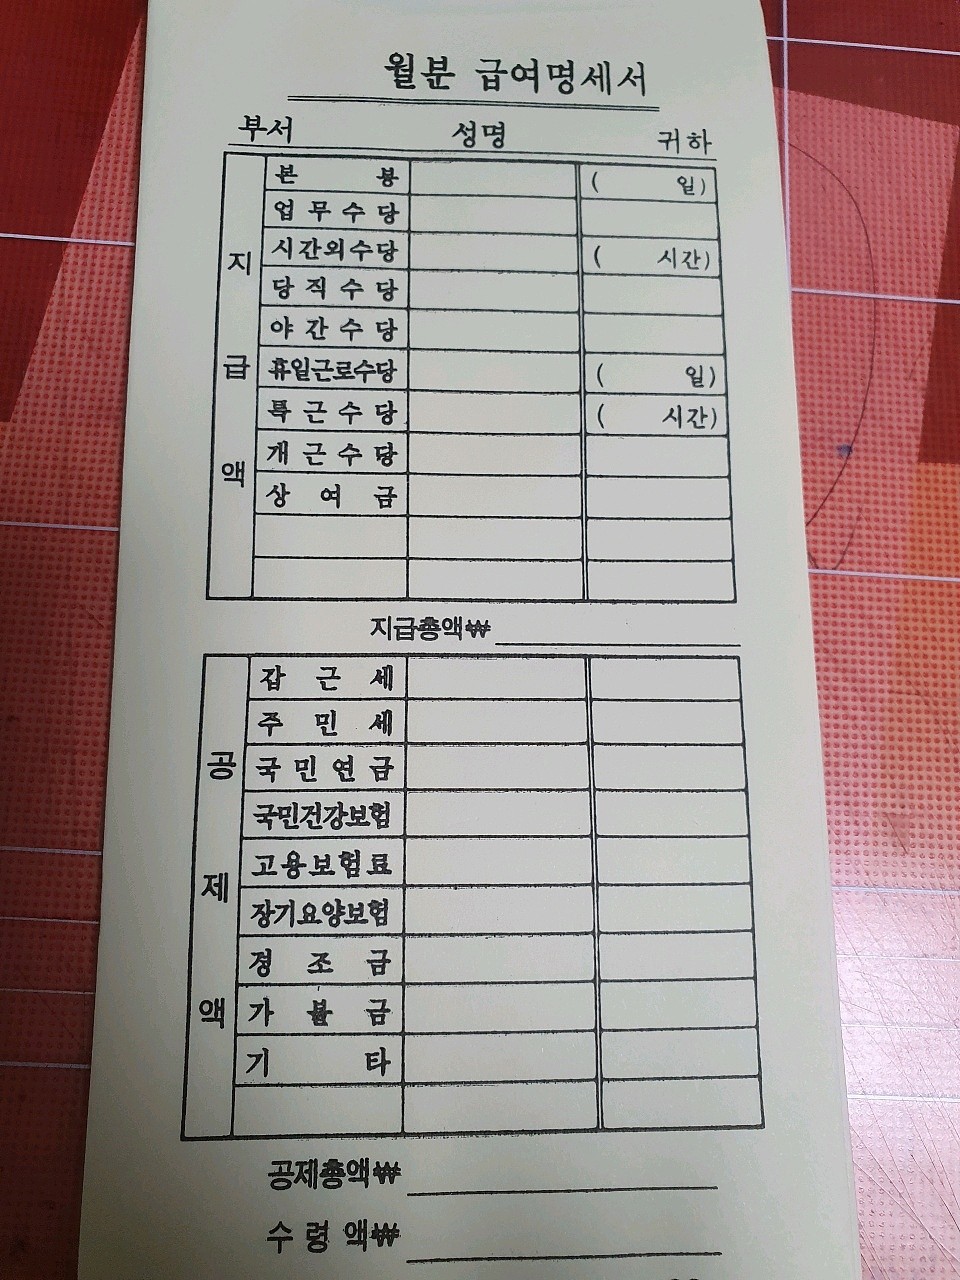 월분 급여명세서
부서 성명 귀하
지급액
본 봉 ( 일)
업무수당
시간외수당 ( 시간)
당직수당
야간수당
휴일근로수당 ( 일)
특근수당 ( 시간)
개근수당
상여금
지급총액₩
공제액
갑근세
주민세
국민연금
국민건강보험
고용보험료
장기요양보험
경조금
가불금
기 타
공제총액₩
수령액₩